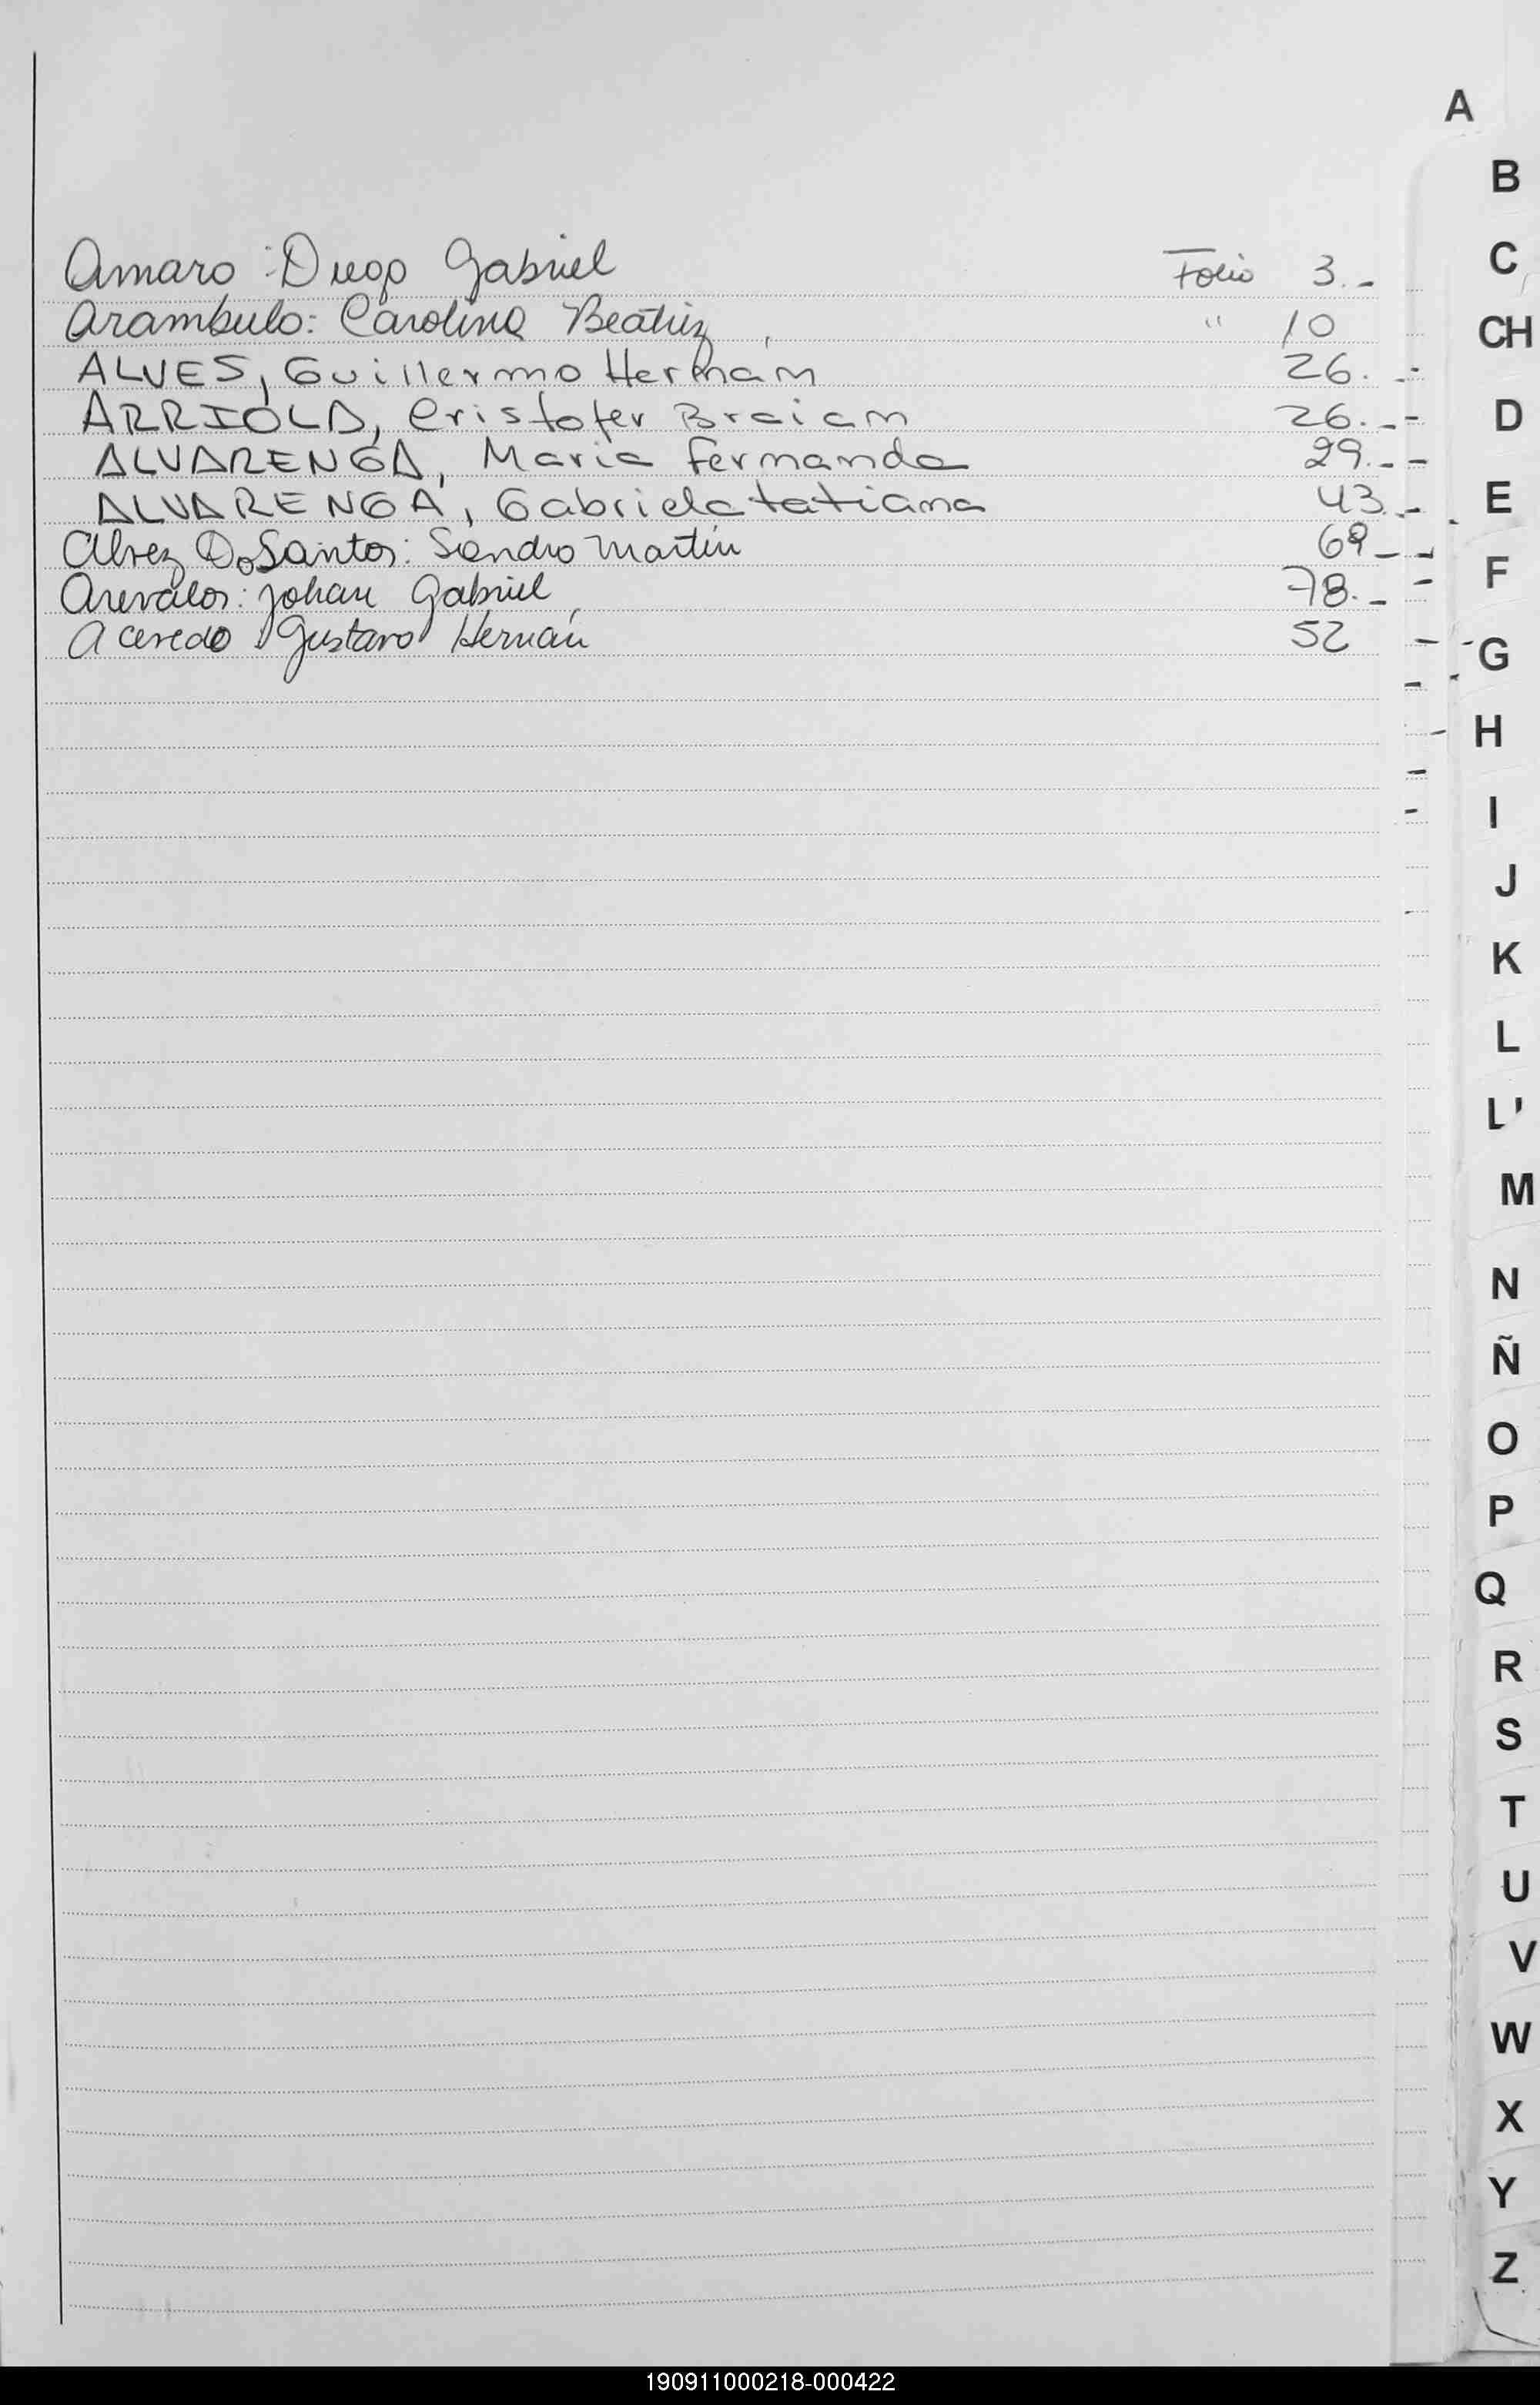 A
B
C
Amaro : Diego Gabriel Folio 3.-
Arambulo: Carolina Beatriz " 10
CH
ALVES, Guillermo Hernán 26.-
D
ARRIOLA, Cristofer Braian 26.-
ALVARENGA, Maria Fernanda 29.-
ALVARENGA, Gabriela tatiana 43.-
E
Alvez Do Santos: Sandro Martín 69-
F
Arevalos: Johan Gabriel 78.-
Acevedo Gustavo Hernán 52
G
H
I
J
K
L
L'
M
N
Ñ
O
P
Q
R
S
T
U
V
W
X
Y
Z
190911000218-000422